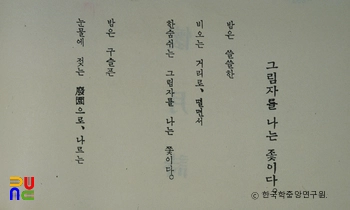 그림자를 나는 쫓이다。
밤은 쓸쓸한
비오는 거리로、떨면서
한숨쉬는 그림자를 나는 쫓이다。
밤은 구슬픈
눈물에 젖는 廢園으로、나르는
© 한국학중앙연구원.